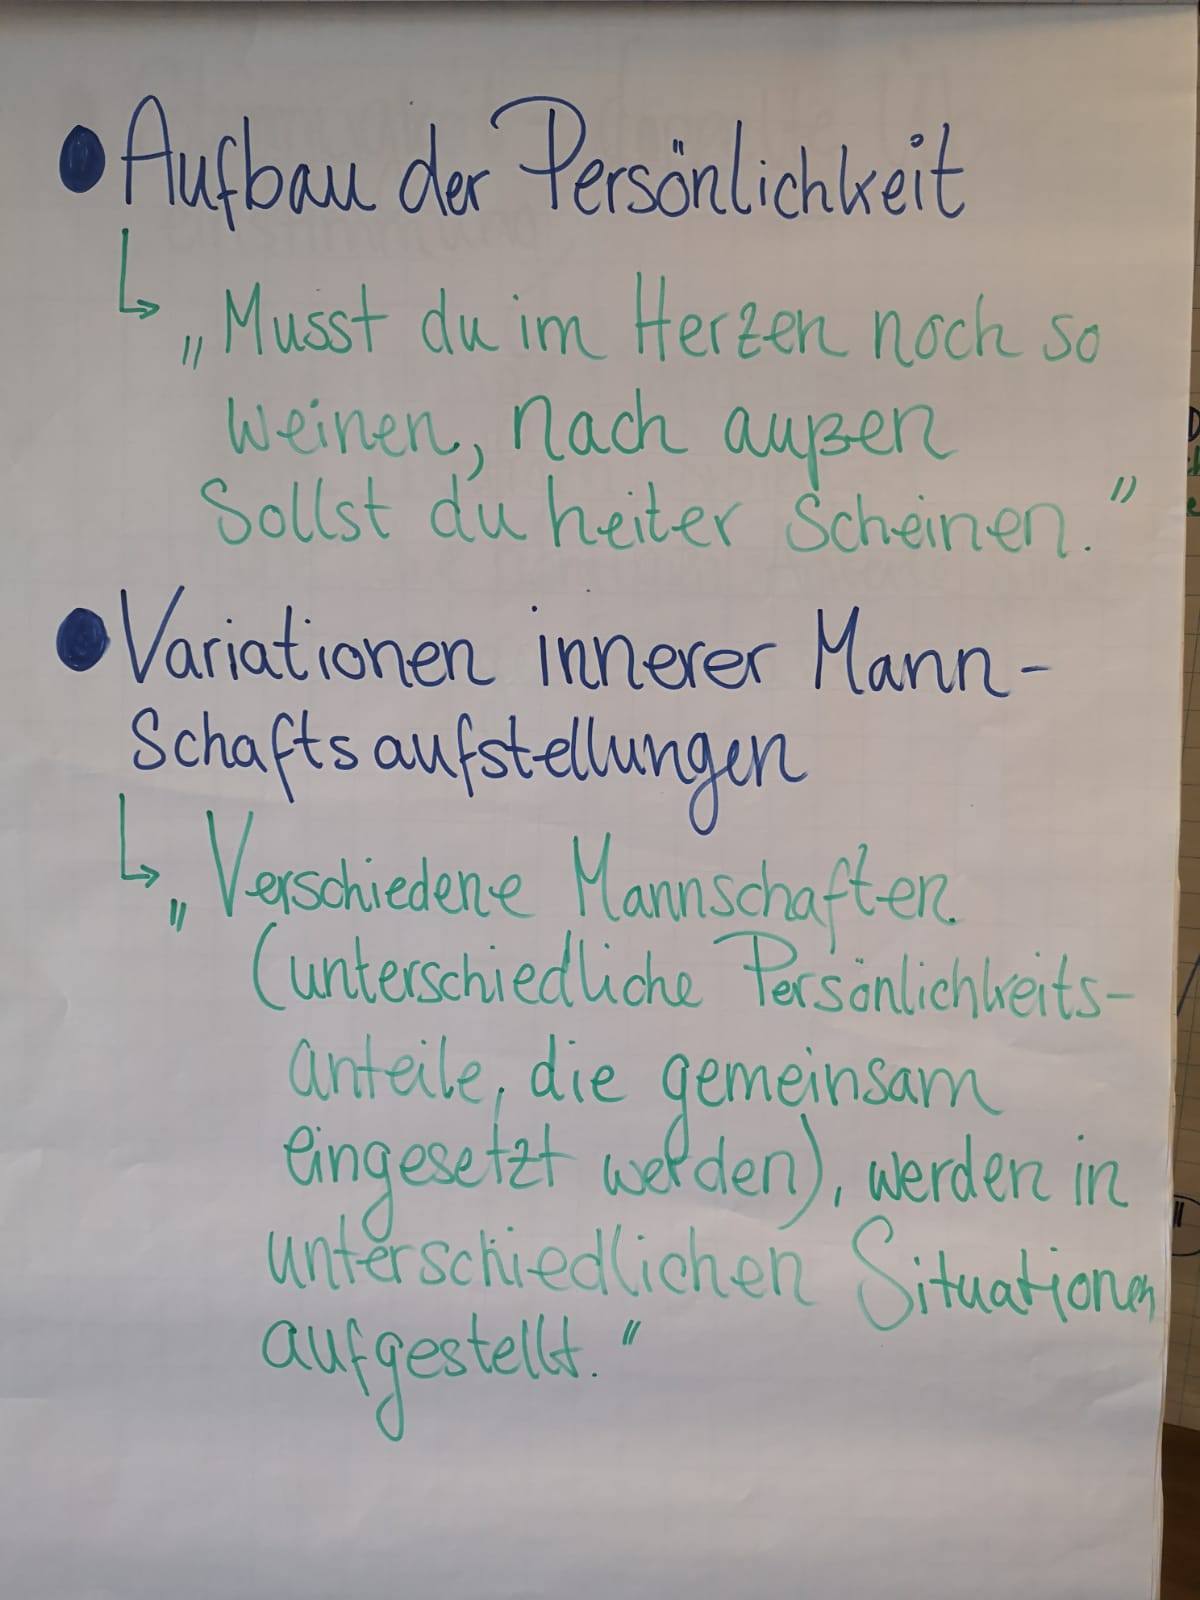 ● Aufbau der Persönlichkeit
↳ „Musst du im Herzen noch so
weinen, nach außen
sollst du heiter scheinen.“
● Variationen innerer Mann-
schaftsaufstellungen
↳ „Verschiedene Mannschaften
(unterschiedliche Persönlichkeits-
anteile, die gemeinsam
eingesetzt werden), werden in
unterschiedlichen Situationen
aufgestellt.“